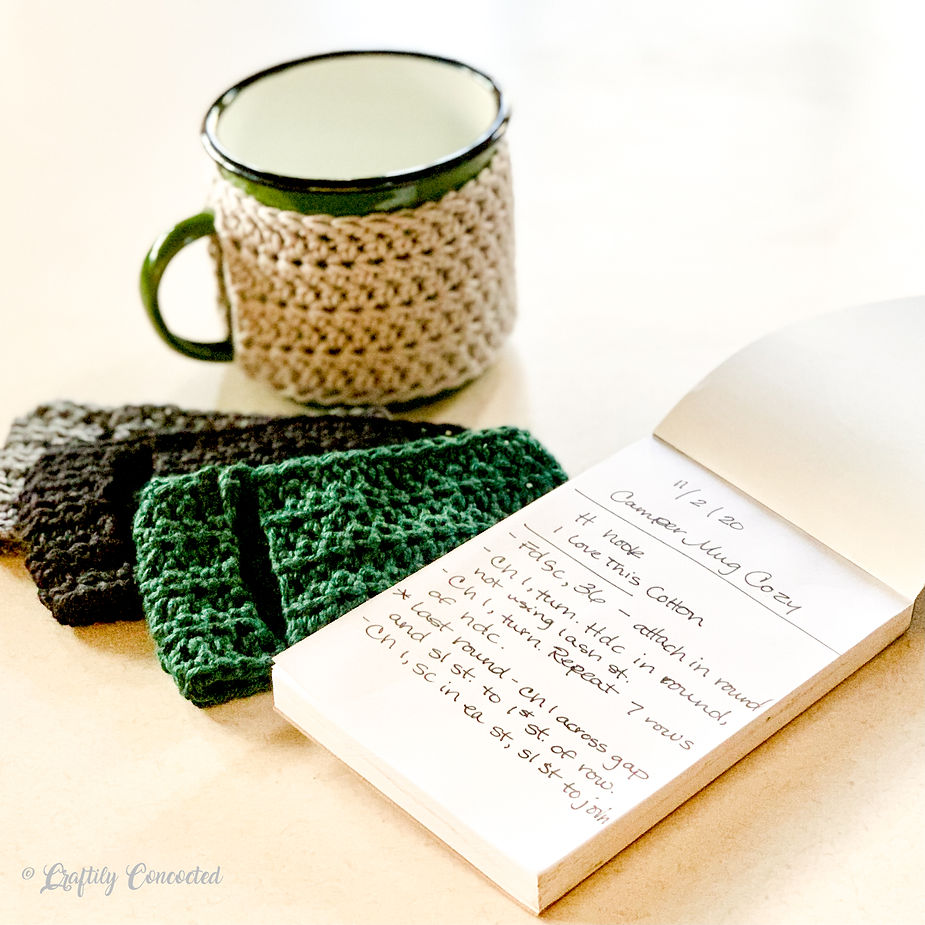 11/2/20
Camper Mug Cozy
H hook
I Love This Cotton
- Fdsc, 36 - attach in round
- Ch 1, turn. Hdc in round,
not using last st.
- Ch 1, turn. Repeat 7 rows
of hdc.
* Last round - ch 1 across gap
and sl st to 1st st. of row.
- Ch 1, sc in ea st, sl st to join
© Craftily Concocted